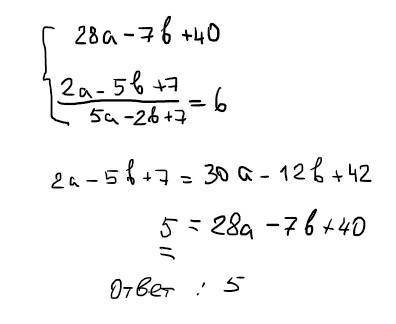 28a - 7b + 40
2a - 5b + 7
5a - 2b + 7 = 6
2a - 5b + 7 = 30a - 12b + 42
5 = 28a - 7b + 40
=
Ответ : 5